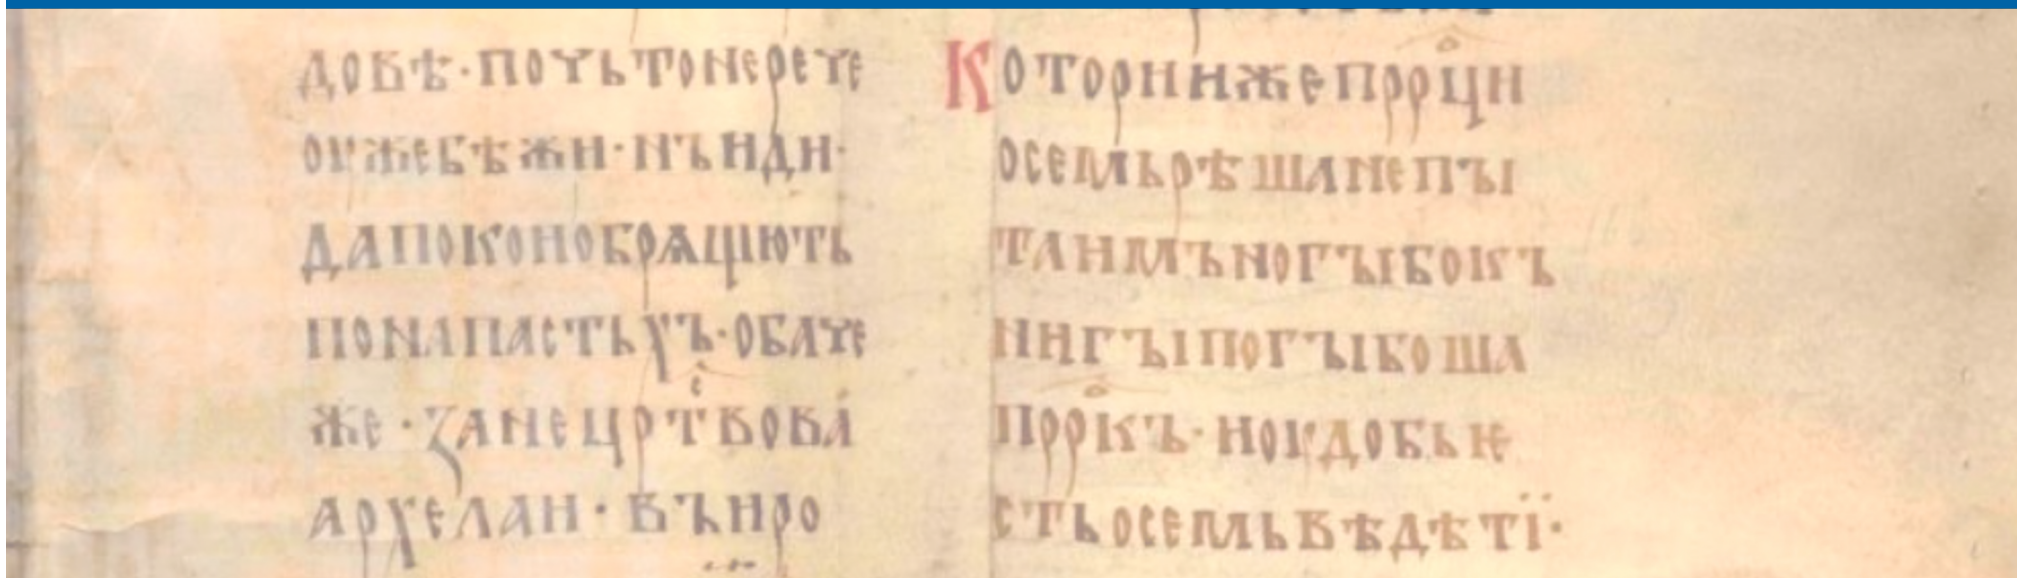 довѣ·почьтонерече
оужебѣжи·нъиди·
дапоконобрѧщють
понапастьхъ·обаче
же·ꙁанецрⷭ҇твова
архелаи·въиро
Которииже прр҇ци
осемьрѣшанепъі
таимъногъібокъ
нигъіпогъібоша
прр҇къ·ноудобьѥ
стьосемьвѣдѣтї·